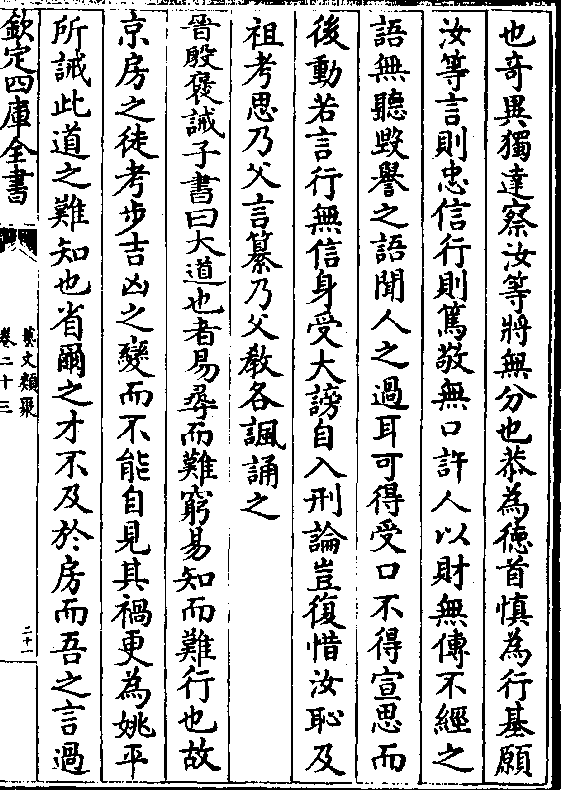 也奇異獨達察汝等將無分也恭為德首慎為行基願
汝等言則忠信行則篤敬無口許人以財無傳不經之
語無聽毀譽之語聞人之過耳可得受口不得宣思而
後動若言行無信身受大謗自入刑論豈復惜汝恥及
祖考思乃父言纂乃父教各諷誦之
晉殷褒誡子書曰大道也者易尋而難窮易知而難行也故
京房之徒考步吉凶之變而不能自見其禍更為姚平
所誡此道之難知也省爾之才不及於房而吾之言過
欽定四庫全書
藝文類聚
卷二十三
二十一